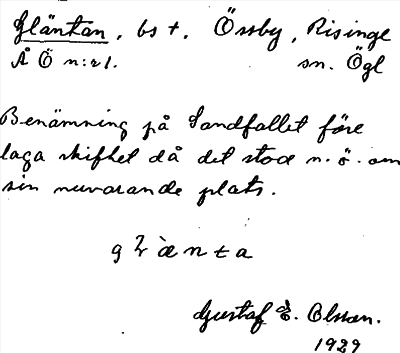 Gläntan, bs t. Össby, Risinge
Å Ö n:r 1. sn. Ögl
Benämning på Sandfallet före
laga skiftet då det stod n. ö. om
sin nuvarande plats.
glänta
Gustaf E. Olsson.
1929